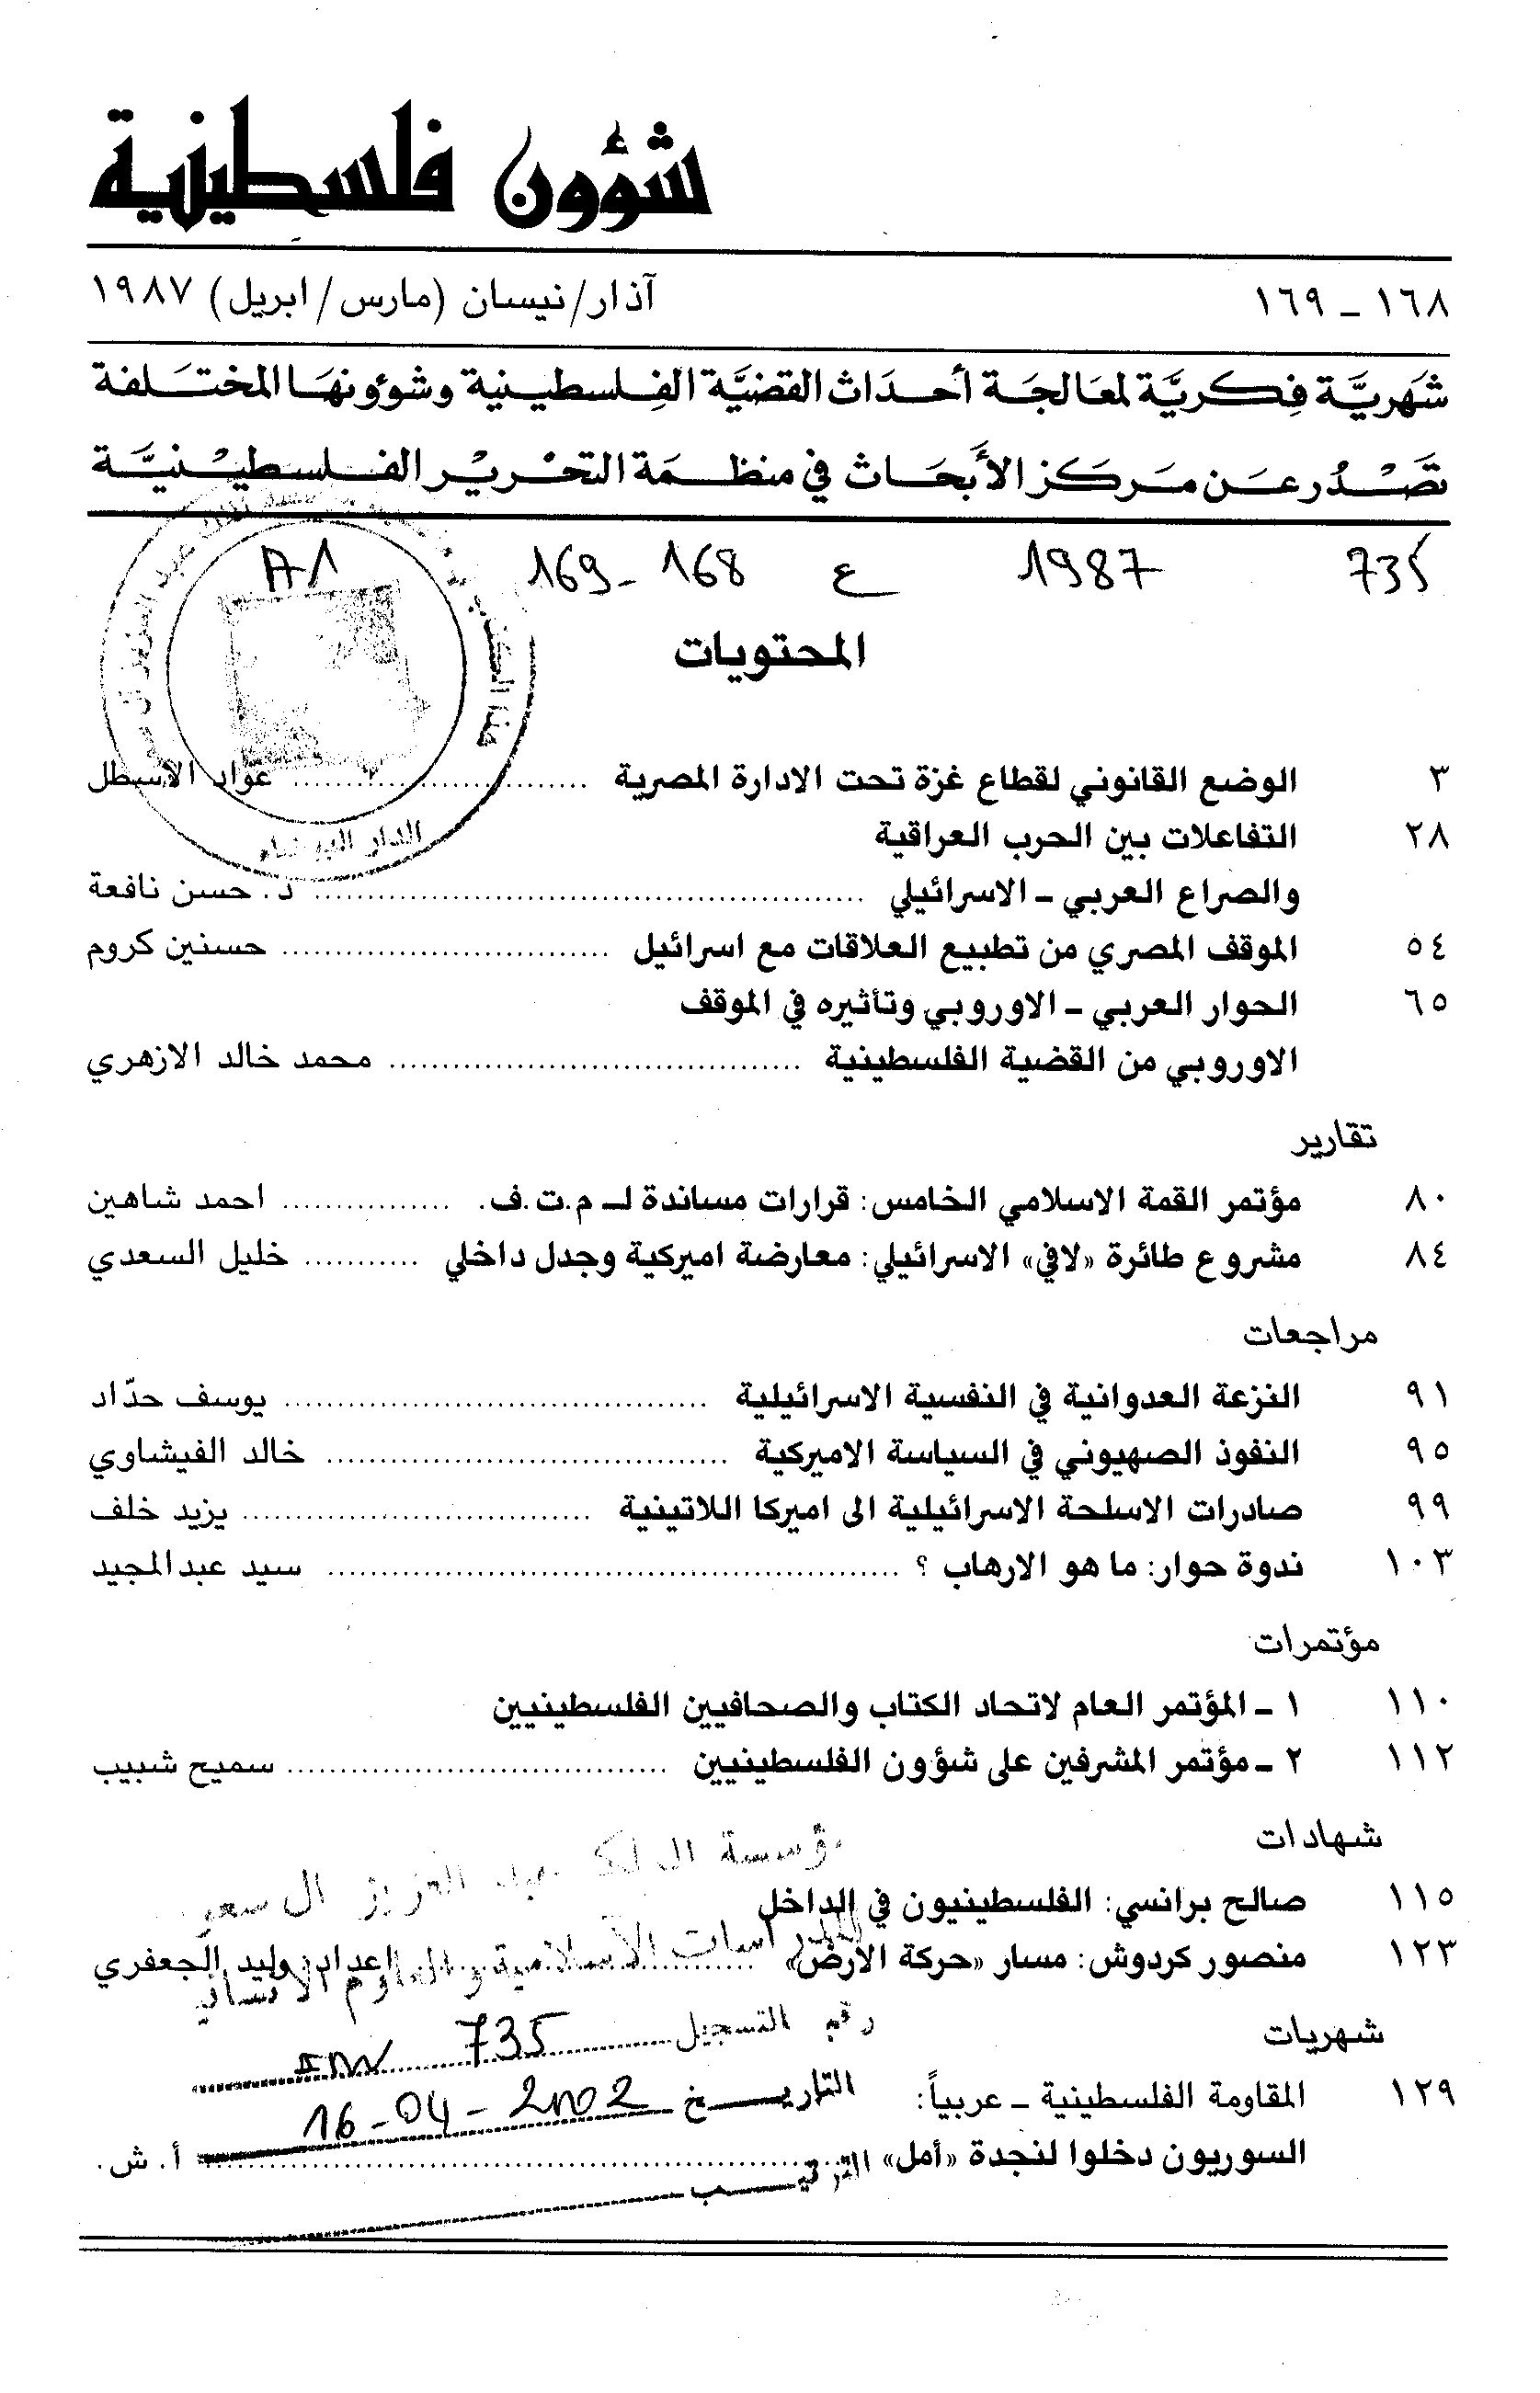 شؤون فلسطينية
١٦٨ - ١٦٩ آذار/نيسان (مارس/ابريل) ١٩٨٧
شَهريَّة فِكريَّة لمعَالجَة أحدَاث القضيَّة الفِلسطينية وشؤونهَا المختَلفة
تصْدُر عَن مَركز الأبحَاث في منظمة التحْريْر الفلسطيْنيَّة
735 1987 ع 168-169 A1
المحتويات
٣ الوضع القانوني لقطاع غزة تحت الادارة المصرية .......... عواد الاسطل
٢٨ التفاعلات بين الحرب العراقية
والصراع العربي - الاسرائيلي .......... د. حسن نافعة
٥٤ الموقف المصري من تطبيع العلاقات مع اسرائيل .......... حسنين كروم
٦٥ الحوار العربي - الاوروبي وتأثيره في الموقف
الاوروبي من القضية الفلسطينية .......... محمد خالد الازهري
تقارير
٨٠ مؤتمر القمة الاسلامي الخامس: قرارات مساندة لـ م.ت.ف. .......... احمد شاهين
٨٤ مشروع طائرة «لافي» الاسرائيلي: معارضة اميركية وجدل داخلي .......... خليل السعدي
مراجعات
٩١ النزعة العدوانية في النفسية الاسرائيلية .......... يوسف حدّاد
٩٥ النفوذ الصهيوني في السياسة الاميركية .......... خالد الفيشاوي
٩٩ صادرات الاسلحة الاسرائيلية الى اميركا اللاتينية .......... يزيد خلف
١٠٣ ندوة حوار: ما هو الارهاب ؟ .......... سيد عبدالمجيد
مؤتمرات
١١٠ ١ - المؤتمر العام لاتحاد الكتاب والصحافيين الفلسطينيين
١١٢ ٢ - مؤتمر المشرفين على شؤون الفلسطينيين .......... سميح شبيب
شهادات
١١٥ صالح برانسي: الفلسطينيون في الداخل
١٢٣ منصور كردوش: مسار «حركة الارض» .......... اعداد: وليد الجعفري
شهريات
١٢٩ المقاومة الفلسطينية - عربياً:
السوريون دخلوا لنجدة «أمل» .......... أ. ش.
الدار البيضاء
عبد العزيز ال سعود
للدراسات الاسلامية والعلوم الانسانية
رقم التسجيل 735
التاريخ 16-04-2002
الترتيب